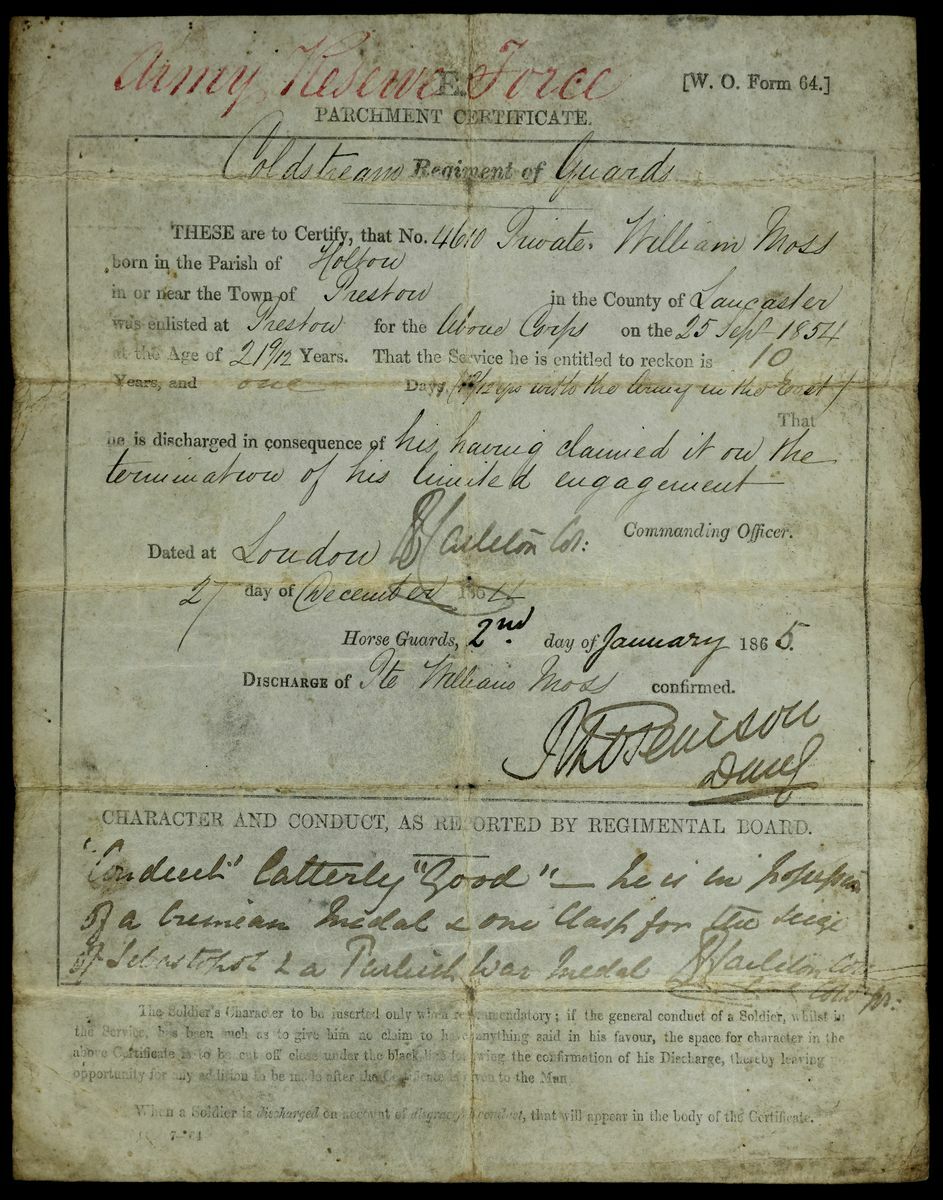 Army Reserve Force
E.
[W. O. Form 64.]
PARCHMENT CERTIFICATE.
Coldstream Regiment of Guards
THESE are to Certify, that No. 4610 Private William Moss
born in the Parish of Holton
in or near the Town of Preston in the County of Lancaster
was enlisted at Preston for the Above Corps on the 25 Sept 1854
at the Age of 21 9/12 Years. That the Service he is entitled to reckon is 10
Years, and one Days, /12 yrs with the Army in the East)
That
he is discharged in consequence of his having claimed it on the
termination of his limited engagement
Commanding Officer.
Dated at London Carleton Col:
27 day of December 1864
Horse Guards, 2nd. day of January 1865.
DISCHARGE of Pte William Moss confirmed.
CHARACTER AND CONDUCT, AS REPORTED BY REGIMENTAL BOARD.
"Conduct" latterly "Good" — he is in possession
of a Crimean Medal & one Clasp for the seige
of Sebastopol & a Turkish War Medal Carleton Col
The Soldier's Character to be inserted only when recommendatory; if the general conduct of a Soldier, whilst in
the Service, has been such as to give him no claim to have anything said in his favour, the space for character in the
above Certificate is to be cut off close under the black line following the confirmation of his Discharge, thereby leaving no
opportunity for any addition to be made after the Certificate is given to the Man.
When a Soldier is discharged on account of disgraceful conduct, that will appear in the body of the Certificate.
7—64